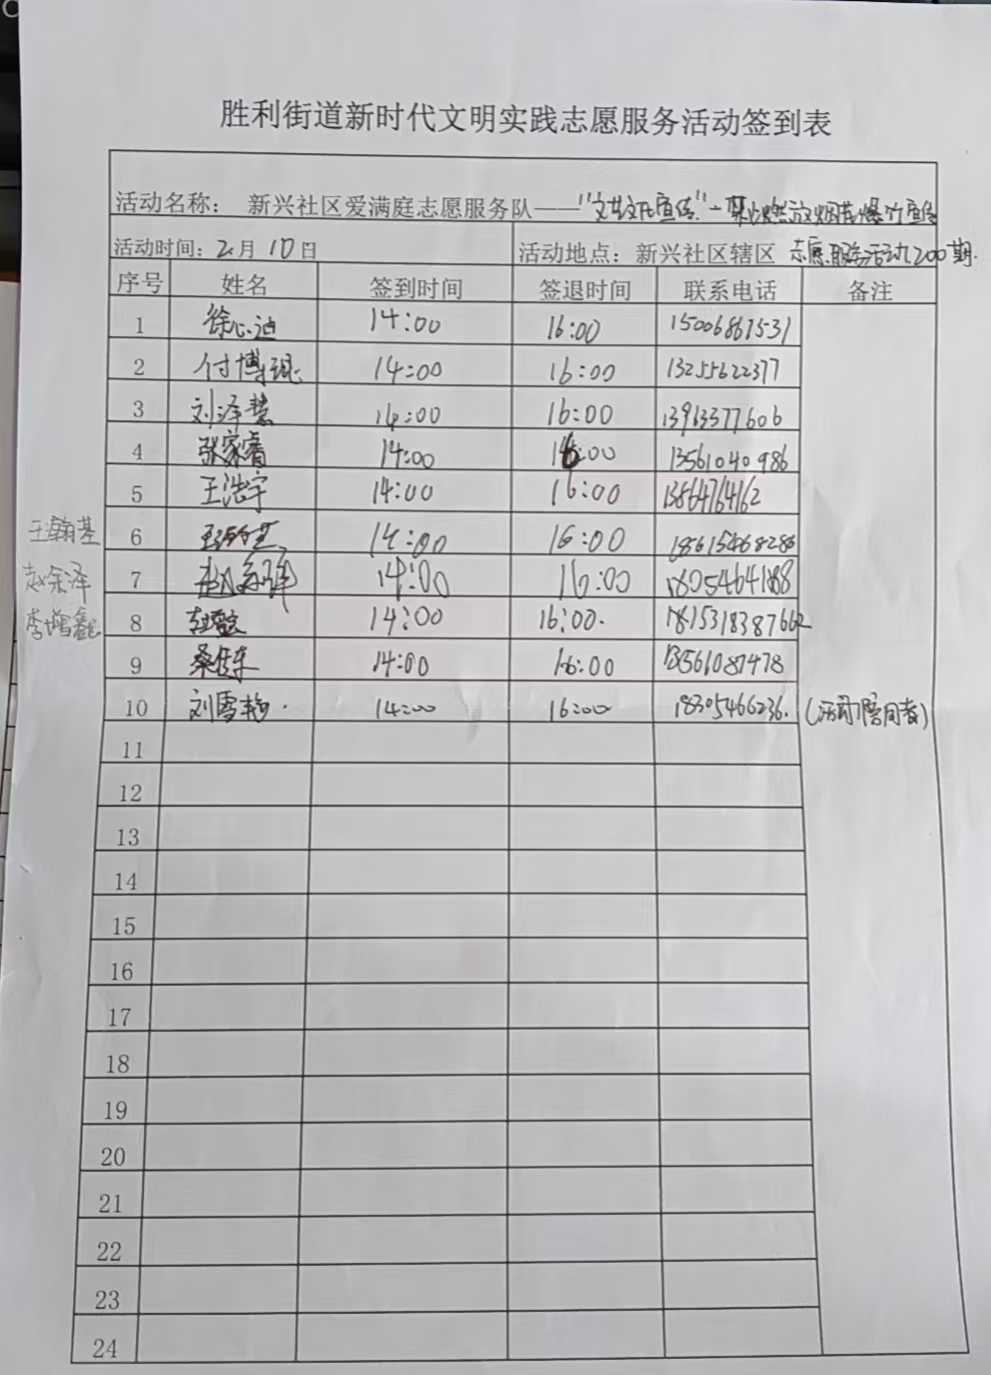 胜利街道新时代文明实践志愿服务活动签到表
活动名称： 新兴社区爱满庭志愿服务队——"文艺文化宣传"-禁止燃放烟花爆竹宣传
活动时间：2月10日 活动地点：新兴社区辖区 志愿服务活动200期.
序号 姓名 签到时间 签退时间 联系电话 备注
1 徐心迪 14:00 16:00 15006867531
2 付博琨 14:00 16:00 13255622377
3 刘泽慧 14:00 16:00 13963377606
4 张家睿 14:00 16:00 13561040986
5 王浩宇 14:00 16:00 13864764162
王瀚基 6 王瀚基 14:00 16:00 18615468286
赵余泽 7 赵余泽 14:00 16:00 18054641188
李增鑫 8 14:00 16:00. 1815318387662
9 桑佳乐 14:00 16:00 13561087478
10 刘雪艳. 14:00 16:00 18305466236. (活动陪同者)
11
12
13
14
15
16
17
18
19
20
21
22
23
24